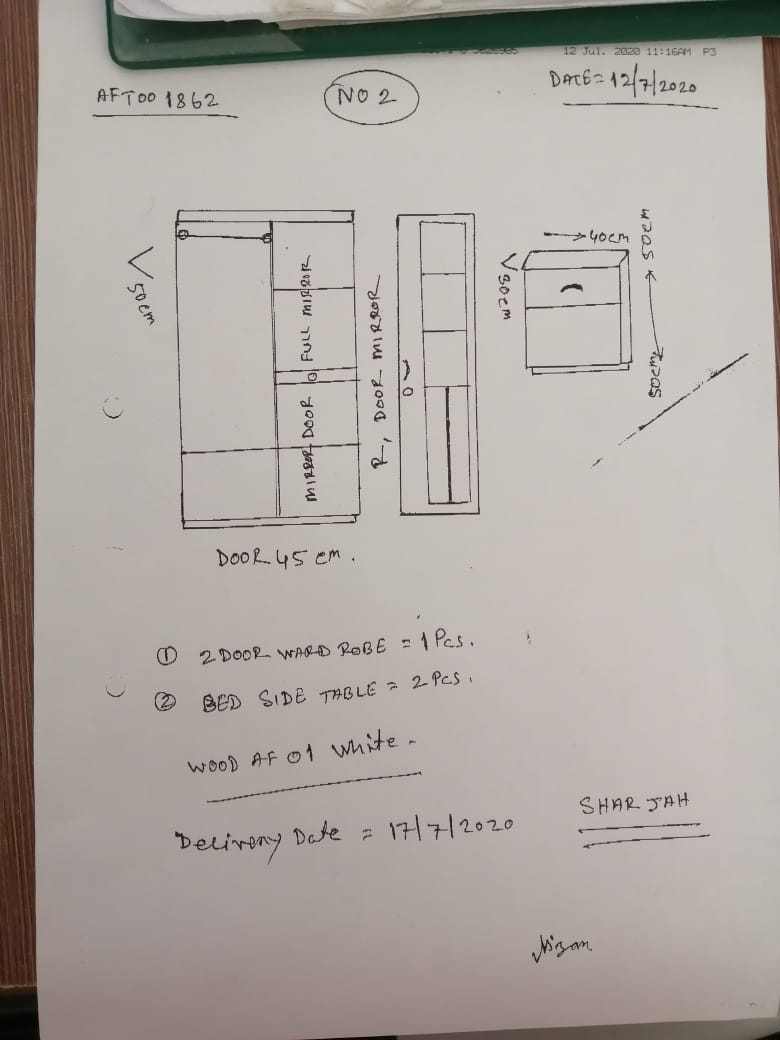 12 Jul. 2020 11:16AM P3
AFTOO 1862
NO 2
DATE = 12/7/2020
50cm
FULL MIRROR
MIRROR DOOR
R, DOOR MIRROR
40cm
50cm
50cm
DOOR 45 cm.
① 2 DOOR WARD ROBE = 1 Pcs.
② BED SIDE TABLE = 2 Pcs.
WOOD AF 01 White -
Delivery Date = 17/7/2020
SHARJAH
Nizam